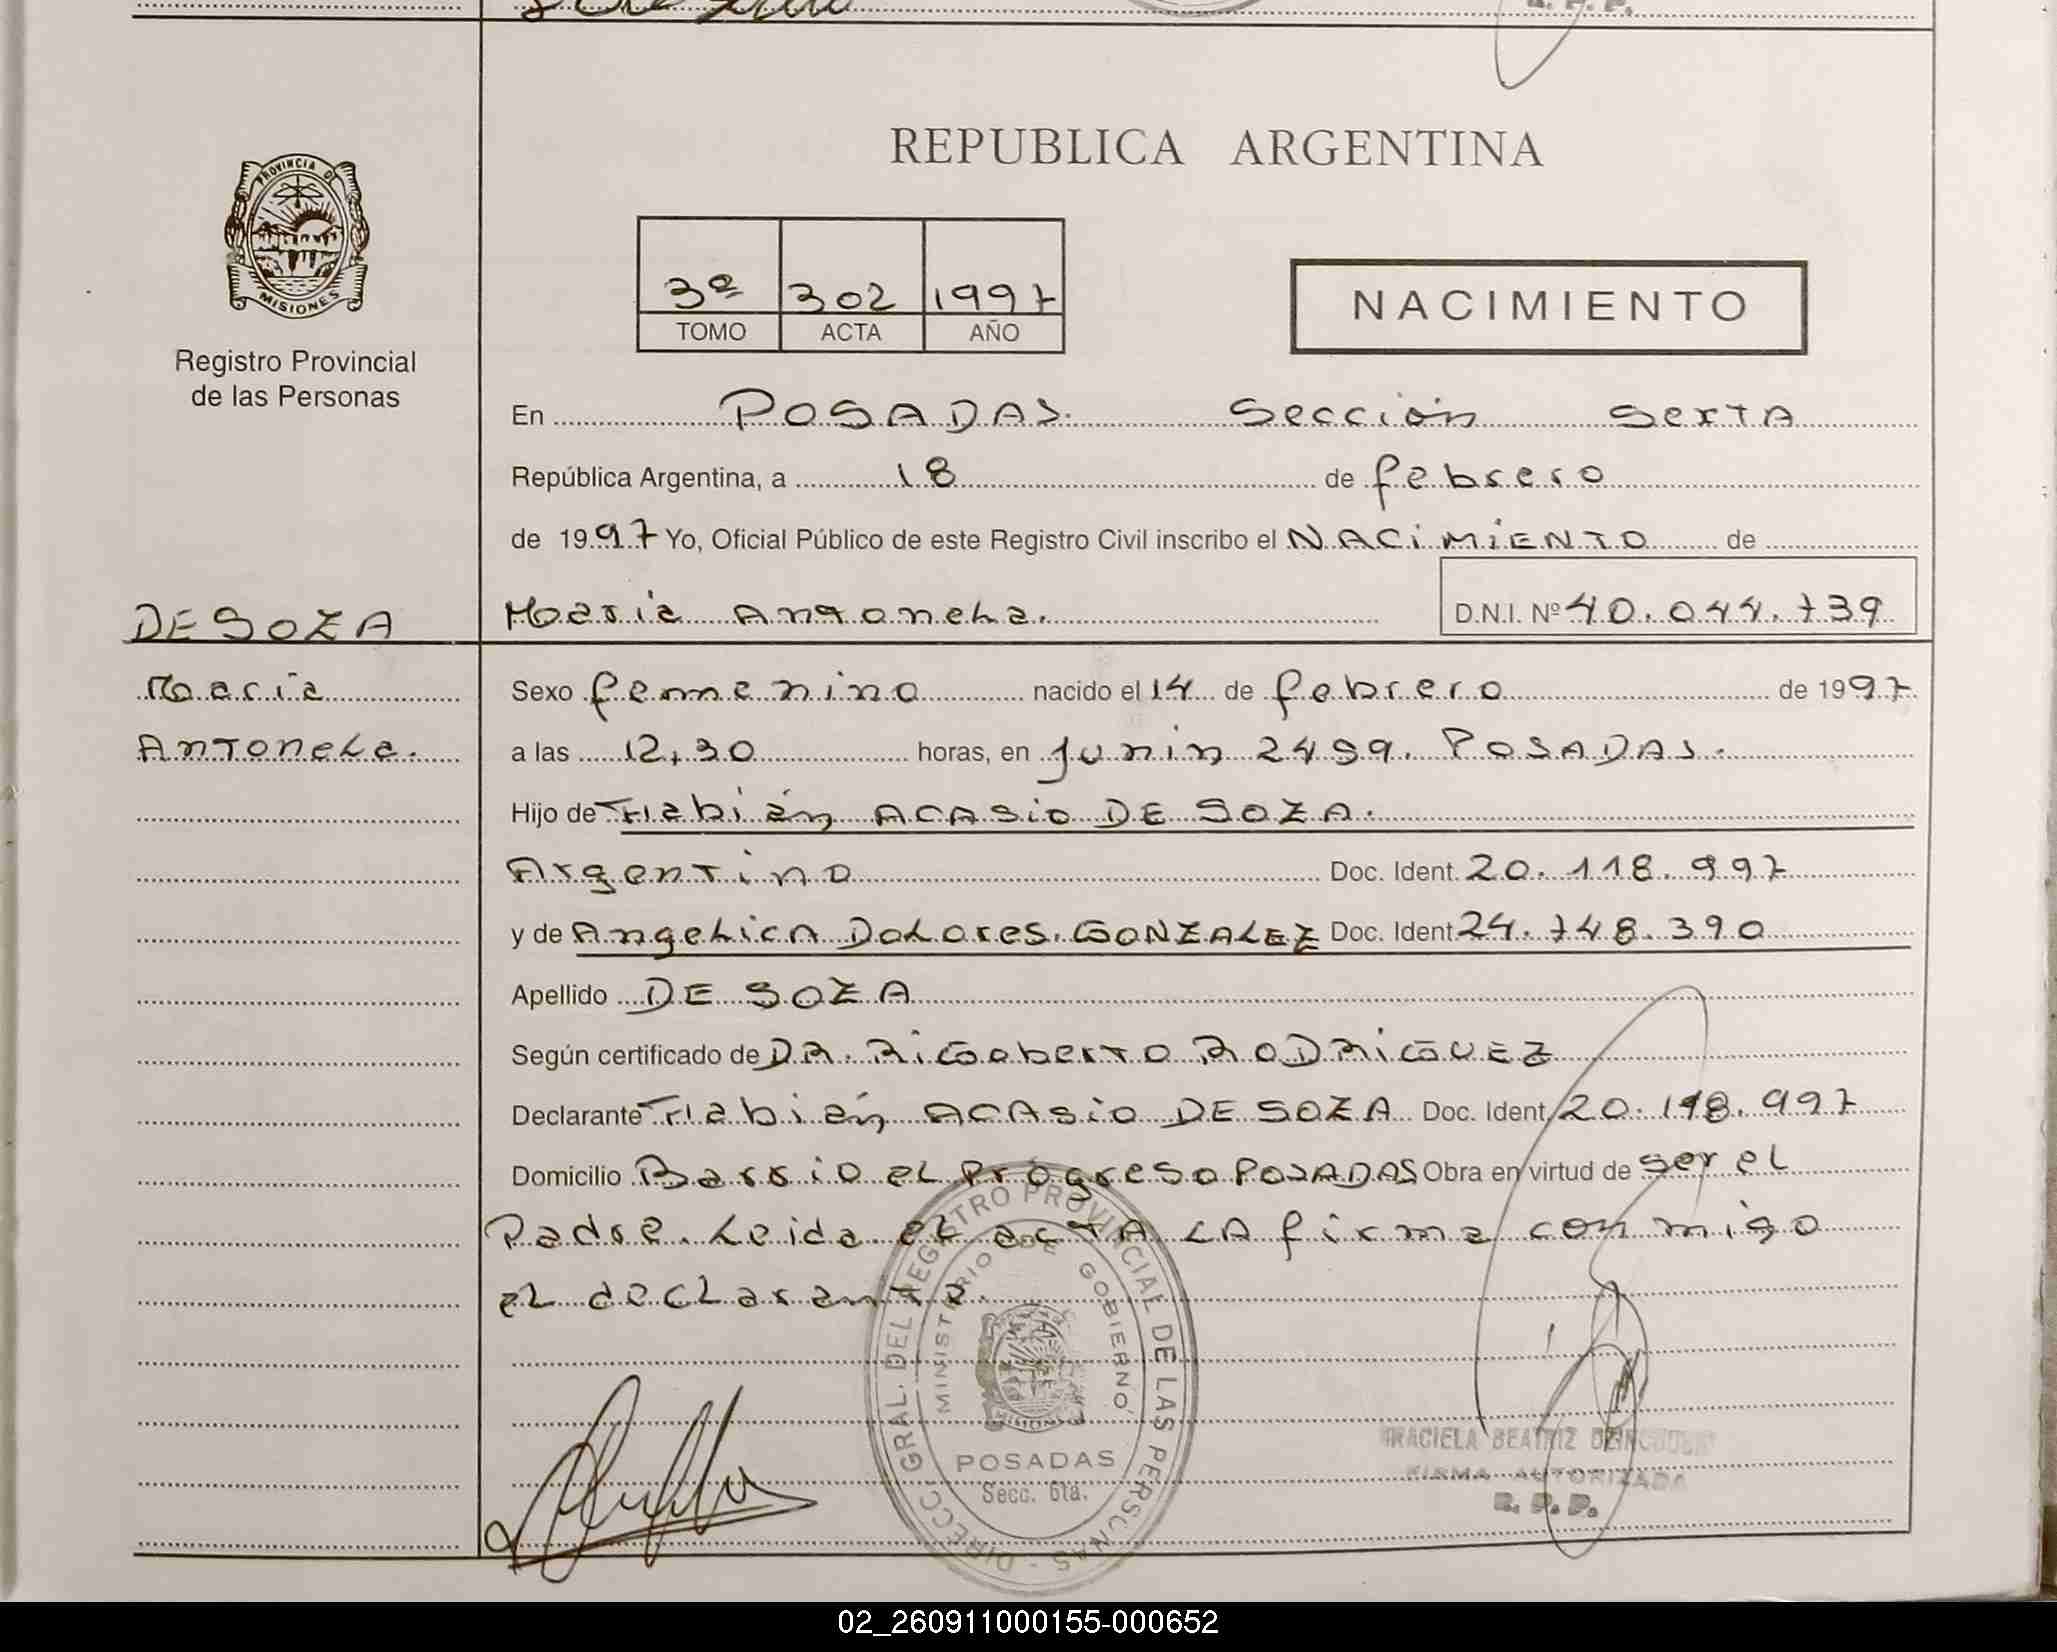 PROVINCIA DE
MISIONES
Registro Provincial
de las Personas
REPUBLICA ARGENTINA
3º 302 1997
TOMO ACTA AÑO
NACIMIENTO
En POSADAS. Sección Sexta
República Argentina, a 18 de febrero
de 1997 Yo, Oficial Público de este Registro Civil inscribo el NACIMIENTO de
DE SOZA
María Antonela. D.N.I. Nº 40.044.739
María
Antonela.
Sexo femenino nacido el 14 de febrero de 1997
a las 12,30 horas, en Junín 2499. POSADAS.
Hijo de Fabián ACASIO DE SOZA.
Argentino Doc. Ident. 20.118.997
y de Angelica Dolores. GONZALEZ Doc. Ident 24.748.390
Apellido DE SOZA
Según certificado de DR. Rigoberto RODRIGUEZ
Declarante Fabián ACASIO DE SOZA Doc. Ident 20.118.997
Domicilio Barrio el Progreso POSADAS Obra en virtud de ser el
Padre. Leida el acta LA firma con migo
el declarante.
DIRECC. GRAL. DEL REGISTRO PROVINCIAL DE LAS PERSONAS
MINISTERIO DE GOBIERNO
MISIONES
POSADAS
Secc. 6ta.
GRACIELA BEATRIZ
FIRMA AUTORIZADA
R. P. P.
02_260911000155-000652